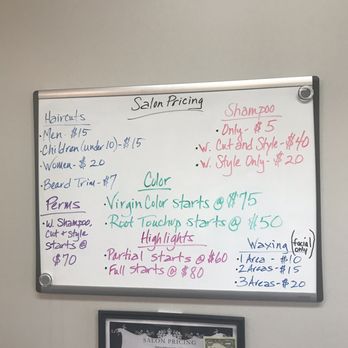 Salon Pricing
Haircuts
• Men - $15
• Children (under 10) - $15
• Women - $20
• Beard Trim - $7
Shampoo
• Only - $5
• W. Cut and Style - $40
• W. Style Only - $20
Color
• Virgin Color starts @ $75
• Root Touchup starts @ $50
Perms
• W. Shampoo,
Cut & Style
starts @
$70
Highlights
• Partial starts @ $60
• Full starts @ $80
Waxing (facial only)
• 1 Area - $10
• 2 Areas - $15
• 3 Areas - $20
SALON PRICING